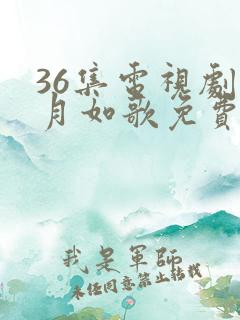 36集電視劇
月如歌免費
我是軍師
未经同意禁止转载